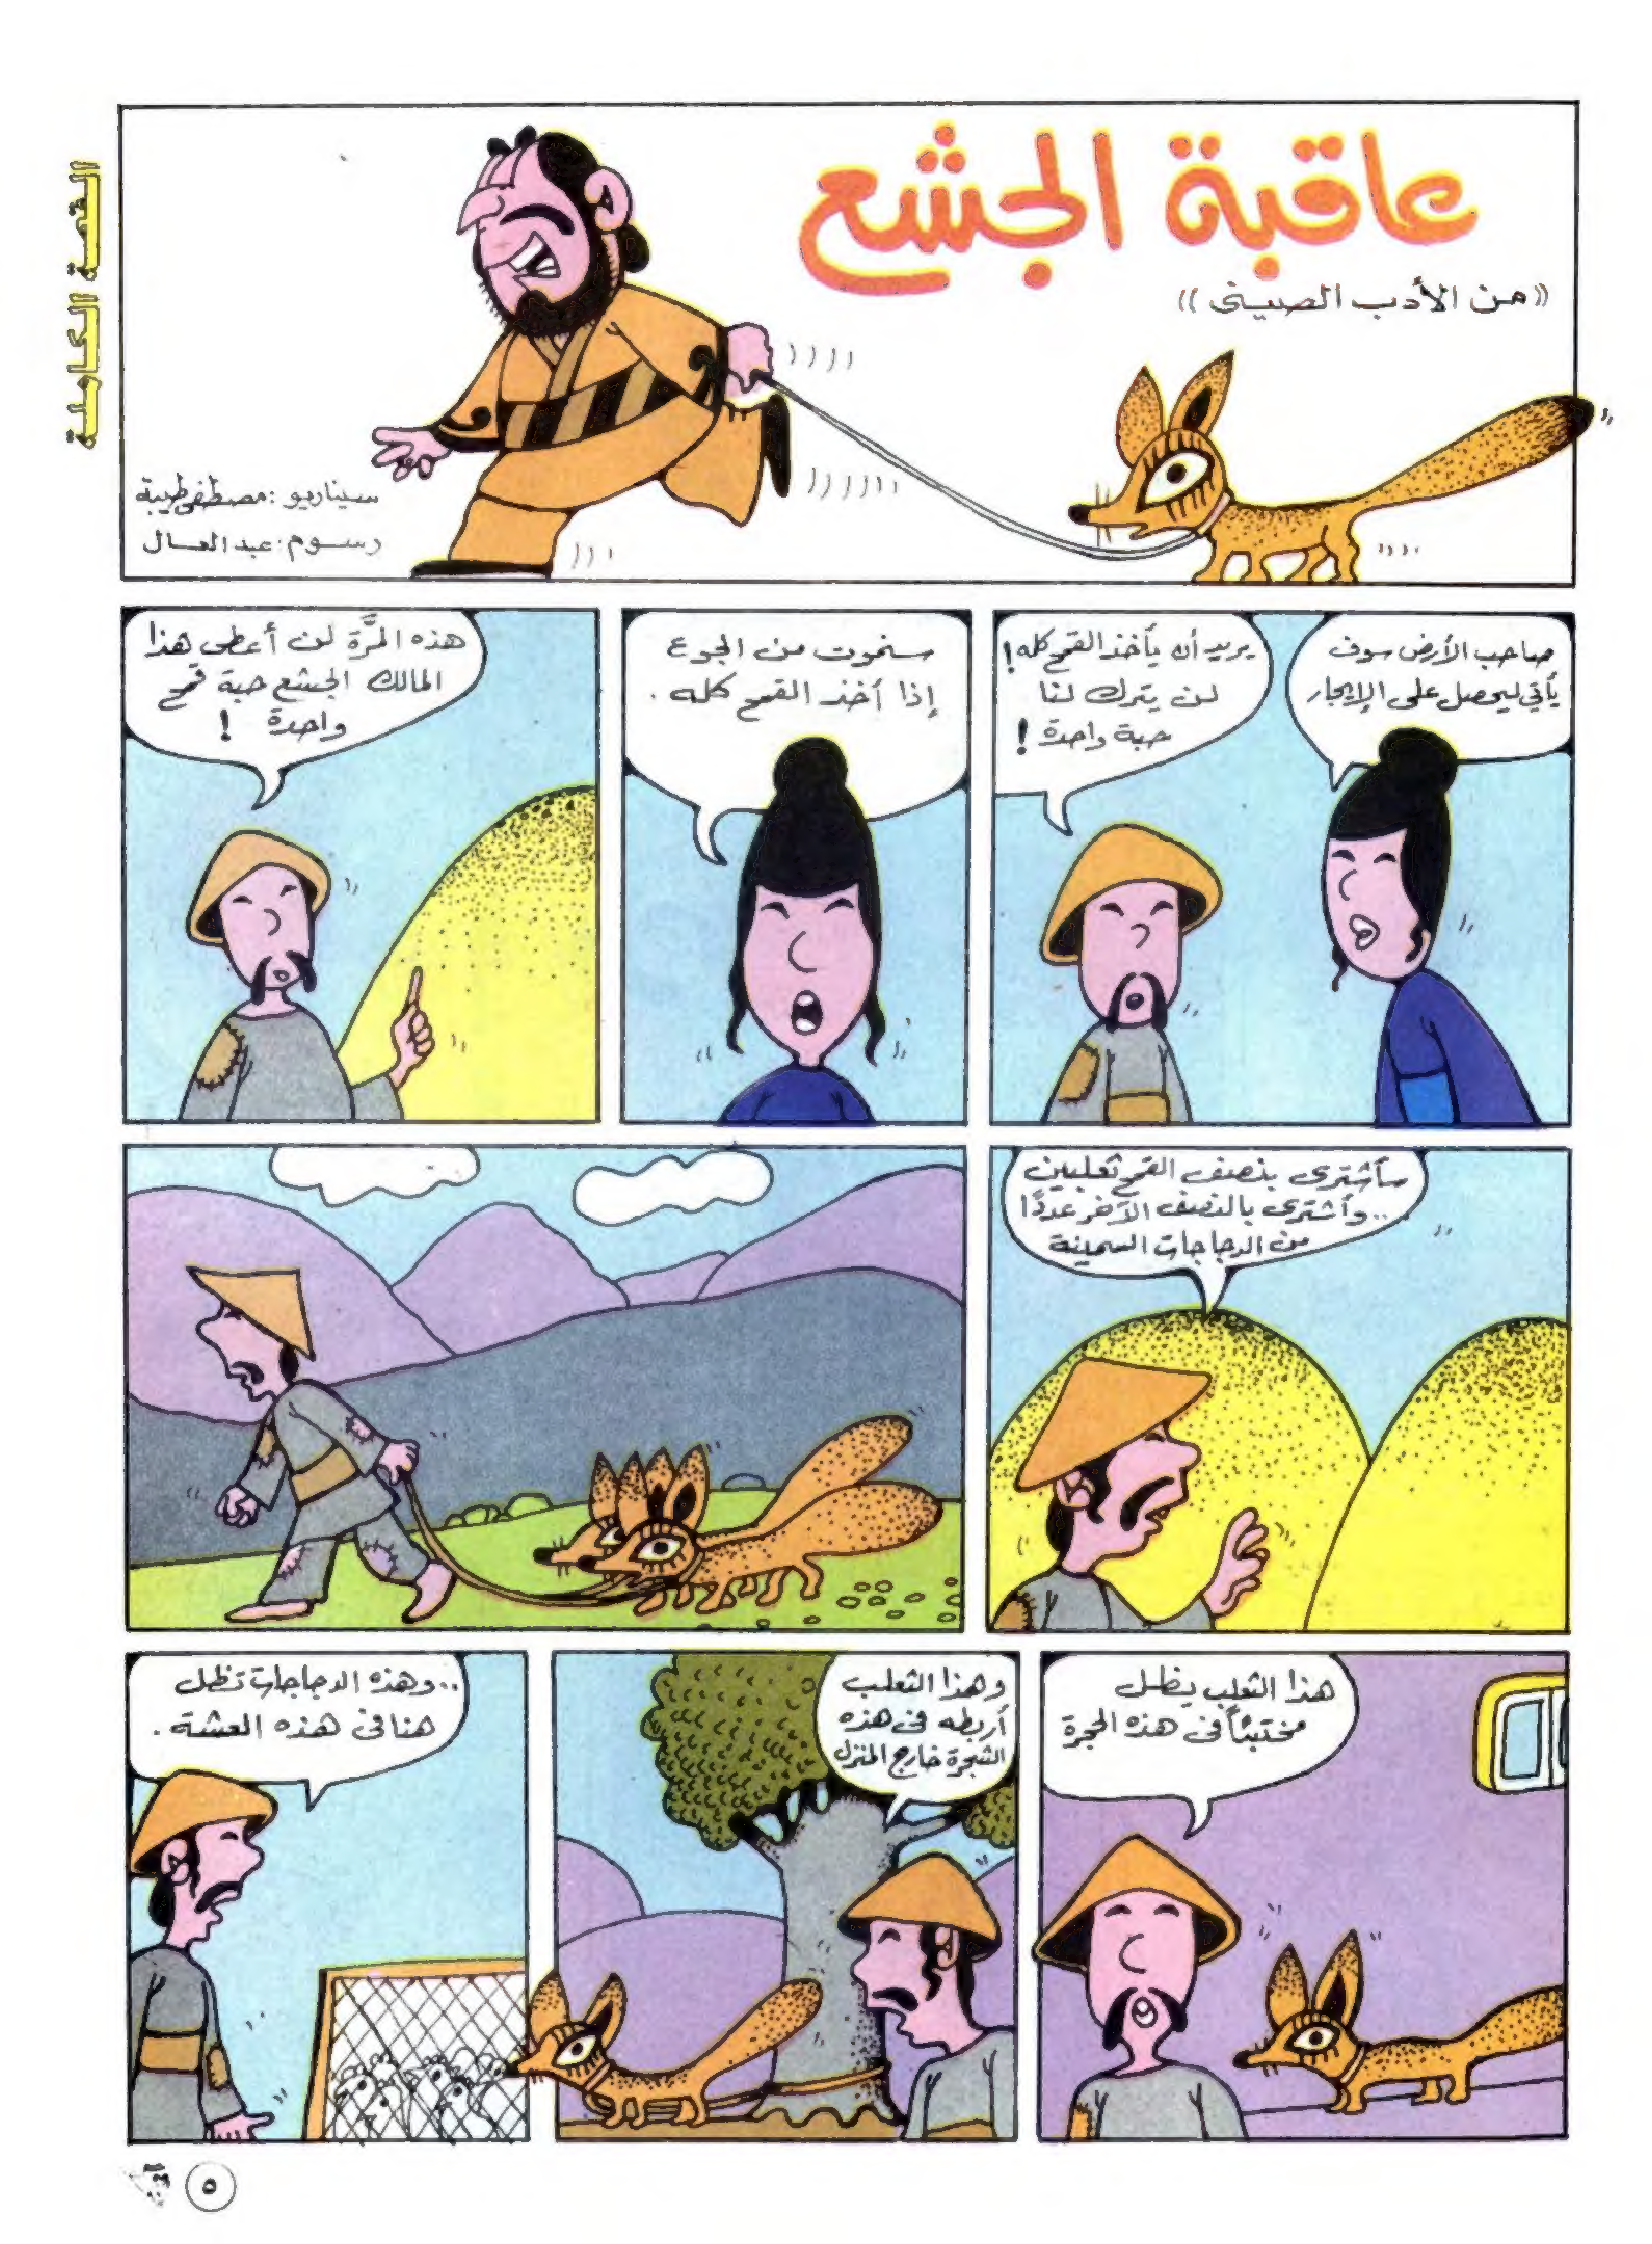 القصة الكاملة
عاقبة الجشع
((من الأدب الصيني))
سيناريو: مصطفى طيبة
رسوم: عبد العال
صاحب الأرض سوف
يأتي ليحصل على الإيجار
يريد أن يأخذ القمح كله!
لن يترك لنا
حبة واحدة!
سنموت من الجوع
إذا أخذ القمح كله.
هذه المرَّة لن أعطى هذا
المالك الجشع حبة قمح
واحدة!
سأشترى بنصف القمح ثعلبين
..وأشترى بالنصف الآخر عددًا
من الدجاجات السمينة
هذا الثعلب يظل
مختبئاً في هذه الحجرة
وهذا الثعلب
أربطه في هذه
الشجرة خارج المنزل
..وهذه الدجاجات تظل
هنا في هذه العشة.
٥